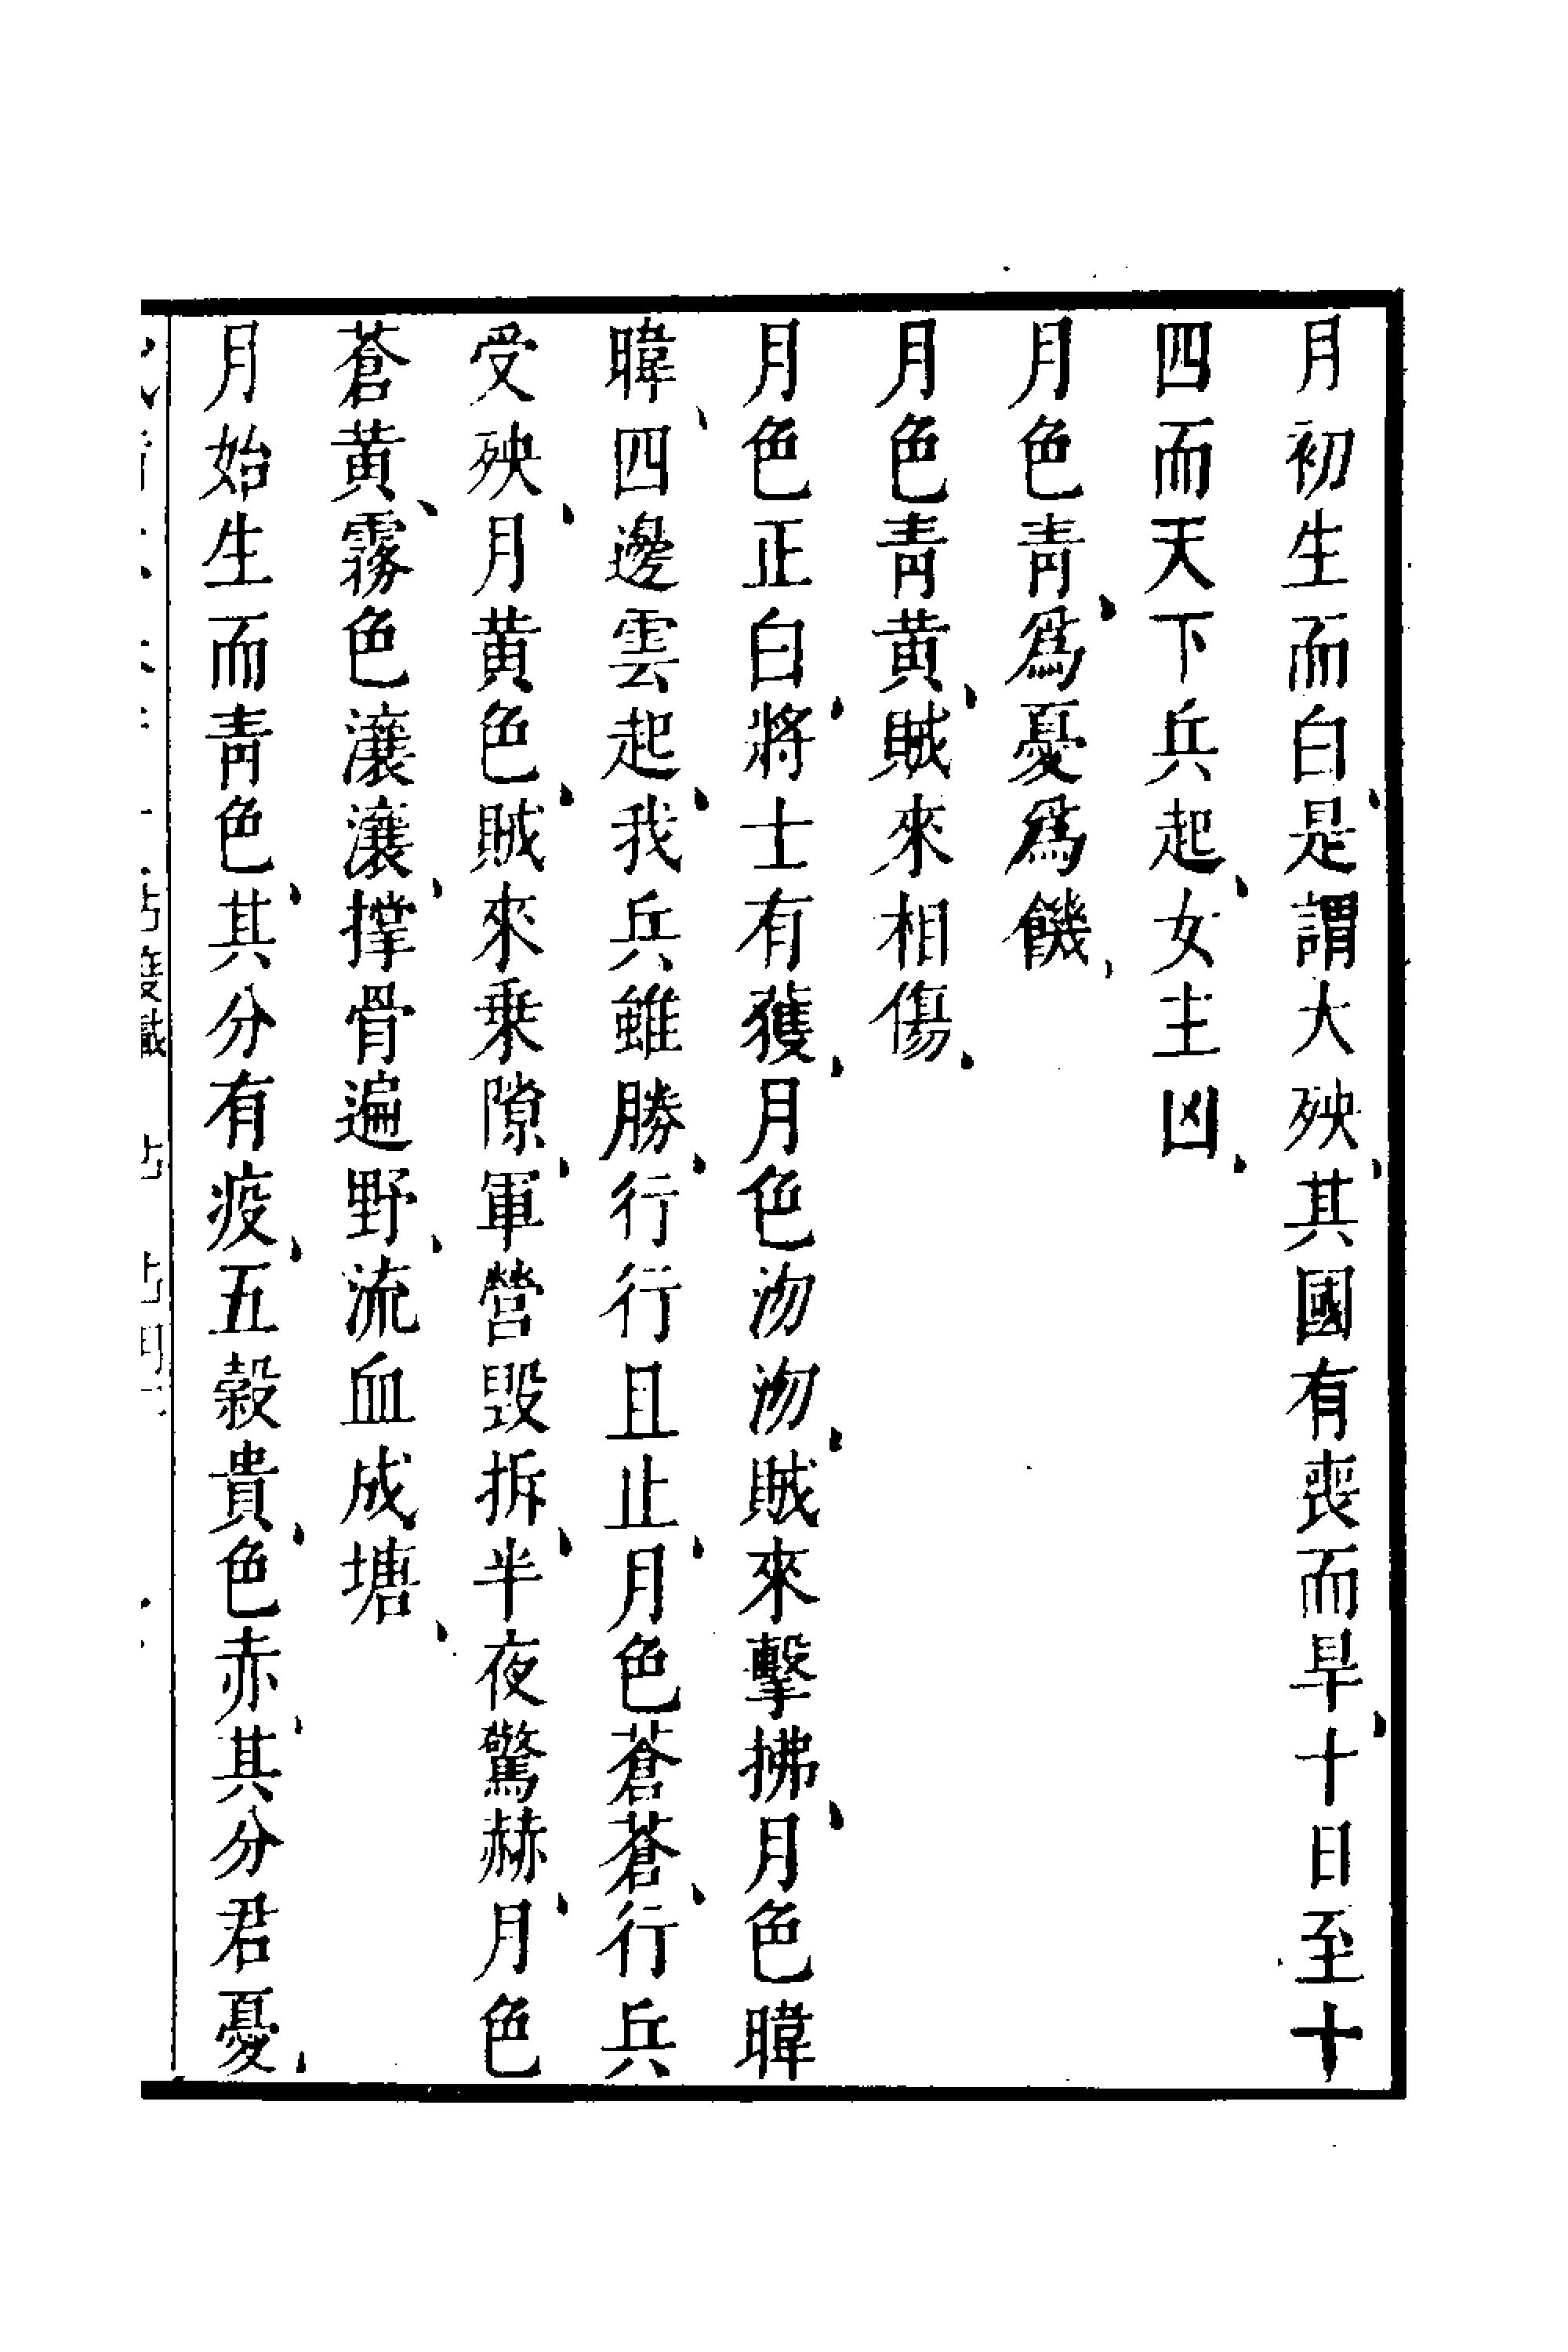 月初生而白、是謂大殃、其國有喪而旱、十日至十
四而天下兵起、女主凶、
月色靑、爲憂爲饑、
月色靑黄、賊來相傷、
月色正白、將士有獲、月色沕沕、賊來擊拂、月色暈
暈、四邊雲起、我兵雖勝、行行且止、月色蒼蒼、行兵
受殃、月黄色、賊來乗隙、軍營毀拆、半夜驚赫、月色
蒼黄、霧色瀼瀼、撑骨遍野、流血成塘、
月始生而靑色、其分有疫、五穀貴、色赤、其分君憂、